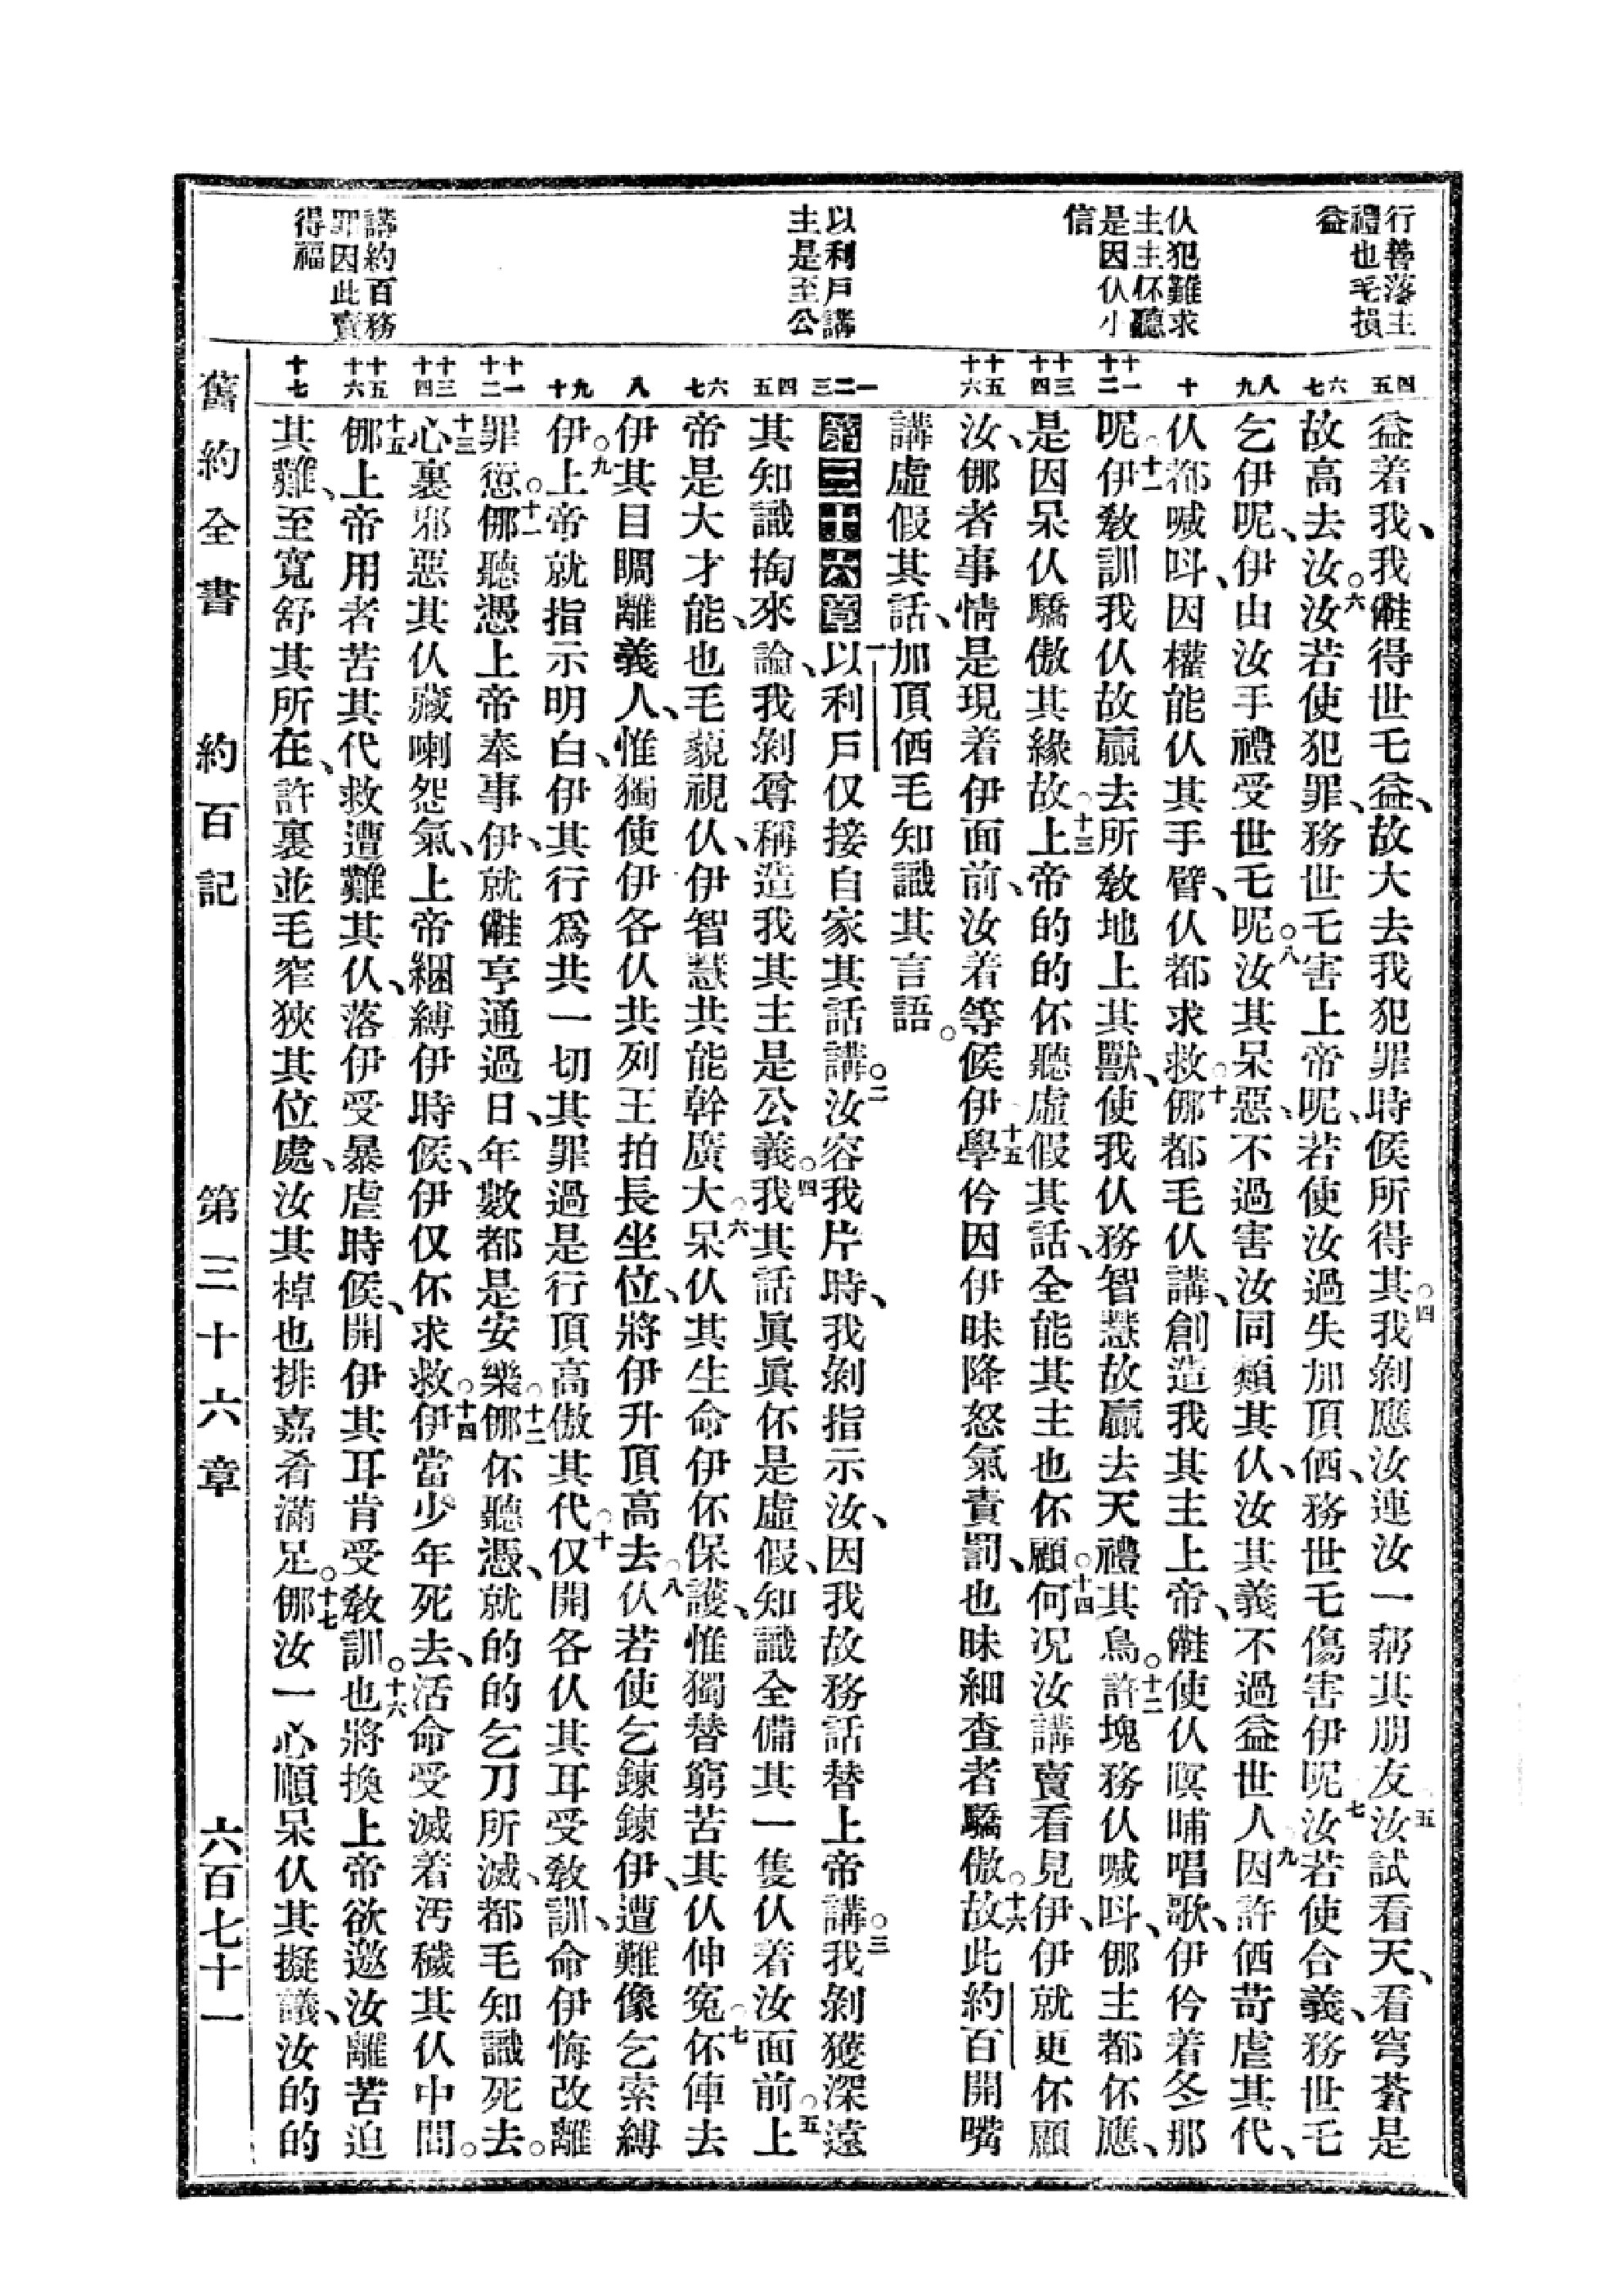 行善落主
禮也毛損
益
仈犯難求
主主伓聽
是因仈小
信
以利戶講
主是至公
講約百務
罪因此賣
得福
四 五
六 七
八 九
十
十一 十二
十三 十四
十五 十六
一 二 三
四 五
六 七
八
九 十
十一 十二
十三 十四
十五 十六
十七
益着我、我㒕得世乇益、故大去我犯罪時候所得其○四我剝應汝連汝一帮其朋友○五汝試看天、看穹蒼是
故高去汝○六汝若使犯罪、務世乇害上帝呢、若使汝過失加頂価、務世乇傷害伊呢○七汝若使合義、務世乇
乞伊呢、伊由汝手禮受世乇呢○八汝其呆惡、不過害汝同類其仈、汝其義不過益世人○九因許価苛虐其代、
仈都喊呌、因權能仈其手臂、仈都求救○十㑚都毛仈講、創造我其主上帝、㒕使仈暝晡唱歌、伊仱着冬那
呢○十一伊敎訓我仈故贏去所敎地上其獸、使我仈務智慧故贏去天禮其鳥○十二許塊務仈喊呌、㑚主都伓應、
是因呆仈驕傲其緣故○十三上帝的的伓聽虛假其話、全能其主也伓顧○十四何况汝講賣看見伊、伊就更伓顧
汝、㑚者事情是現着伊面前、汝着等候伊○十五學仱因伊昧降怒氣責罰、也昧細查者驕傲○十六故此約百開嘴
講虛假其話、加頂価毛知識其言語。
第三十六章 一以利戶仅接自家其話講○二汝容我片時、我剝指示汝、因我故務話替上帝講○三我剝獲深遠
其知識掏來論、我剝尊稱造我其主是公義○四我其話眞眞伓是虛假、知識全備其一隻仈着汝面前○五上
帝是大才能、也毛藐視仈、伊智慧共能幹廣大○六呆仈其生命伊伓保護、惟獨替窮苦其仈伸寃○七伓俥去
伊其目睭離義人、惟獨使伊各仈共列王拍長坐位、將伊升頂高去○八仈若使乞鍊鍊伊、遭難像乞索縛
伊○九上帝就指示明白、伊其行爲共一切其罪過是行頂高傲其代○十仅開各仈其耳受敎訓、命伊悔改離
罪愆○十一㑚聽憑上帝奉事伊、就㒕亨通過日、年數都是安樂○十二㑚伓聽憑、就的的乞刀所滅、都毛知識死去。
十三心裏邪惡其仈藏喇怨氣、上帝綑縛伊時候、伊仅伓求救○十四伊當少年死去、活命受滅着污穢其仈中間。
十五㑚上帝用者苦其代救遭難其仈、落伊受暴虐時候、開伊其耳肯受敎訓○十六也將換上帝欲邀汝離苦迫
其難、至寬舒其所在、許裏並毛窄狹其位處、汝其棹也排嘉肴滿足○十七㑚汝一心順呆仈其擬議、汝的的
舊約全書 約百記 第三十六章 六百七十一